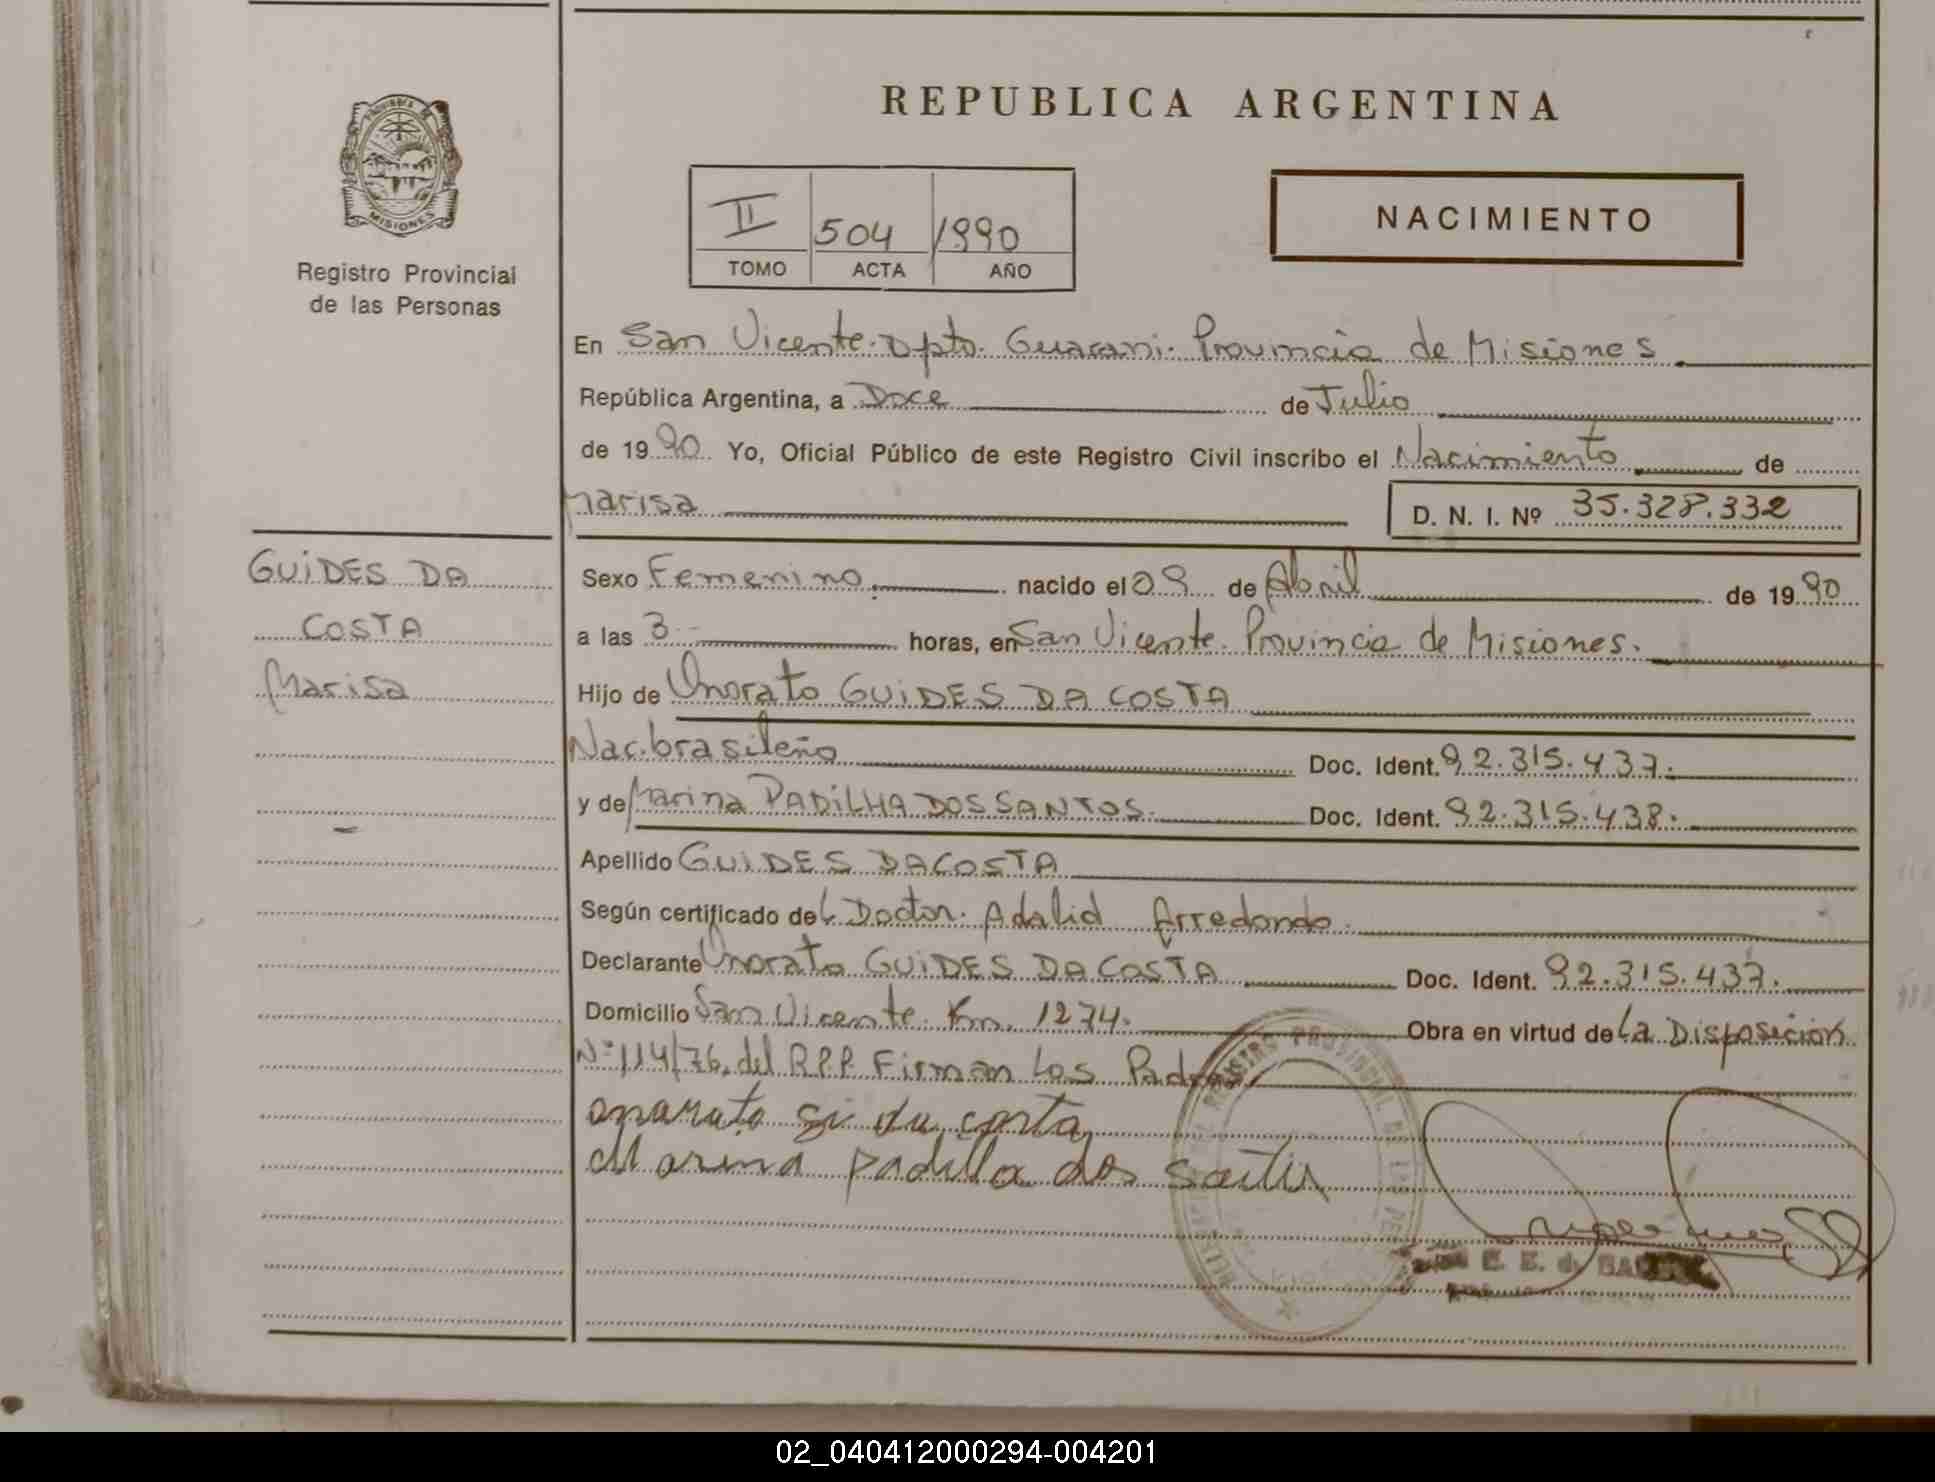 REPUBLICA ARGENTINA
PROVINCIA DE
MISIONES
Registro Provincial
de las Personas
II 504 1990
TOMO ACTA AÑO
NACIMIENTO
En San Vicente. Dpto. Guarani. Provincia de Misiones
República Argentina, a Doce de Julio
de 1990 Yo, Oficial Público de este Registro Civil inscribo el Nacimiento de
Marisa
D. N. I. Nº 35.328.332
GUIDES DA
COSTA
Marisa
Sexo Femenino. nacido el 09 de Abril de 1990
a las 3 horas, en San Vicente. Provincia de Misiones.
Hijo de Unorato GUIDES DA COSTA
Nac. brasileño Doc. Ident. 92.315.437.
y de Marina PADILHA DOS SANTOS. Doc. Ident. 92.315.438.
Apellido GUIDES DA COSTA
Según certificado del Doctor. Adalid Arredondo.
Declarante Unorato GUIDES DA COSTA Doc. Ident. 92.315.437.
Domicilio San Vicente. Km. 1274. Obra en virtud de La Disposición
Nº 114/76. del R.P.P. Firman Los Padres
onarato gi da costa
Marina Padilla dos
REGISTRO PROVINCIAL DE LAS
02_040412000294-004201